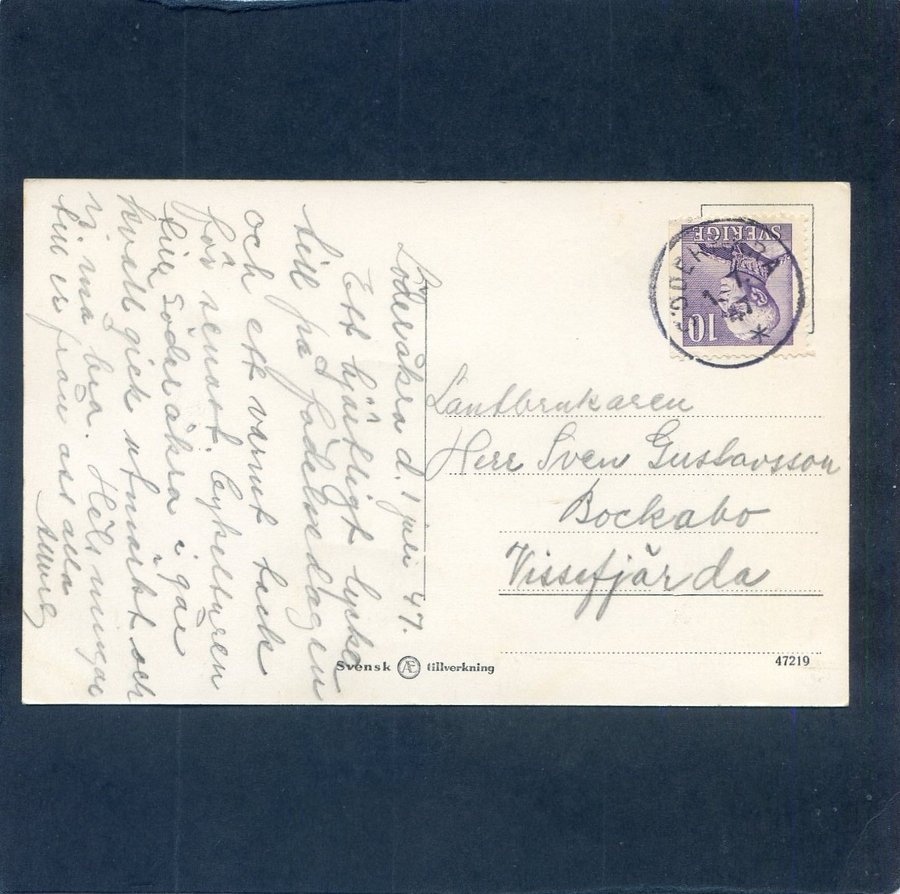 Söderåkra d. 1 juli 47.
Ett hjärtligt lycka
till på födelsedagen
och ett varmt tack
för senast. Cykelturen
till Söderåkra i går
kväll gick utmärkt och
vi må bra. Hälsningar
till er från oss alla
SVERIGE
10
SÖDERÅKRA
1 7
47
*
Lantbrukaren
Herr Sven Gustavsson
Bockabo
Vissefjärda
Svensk Æ tillverkning
47219